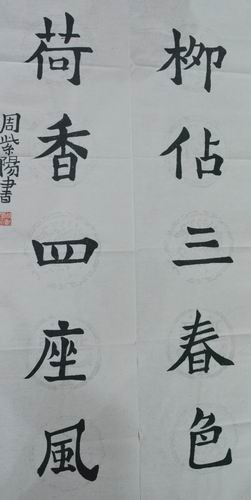 柳佔三春色
荷香四座風
周紫陽書